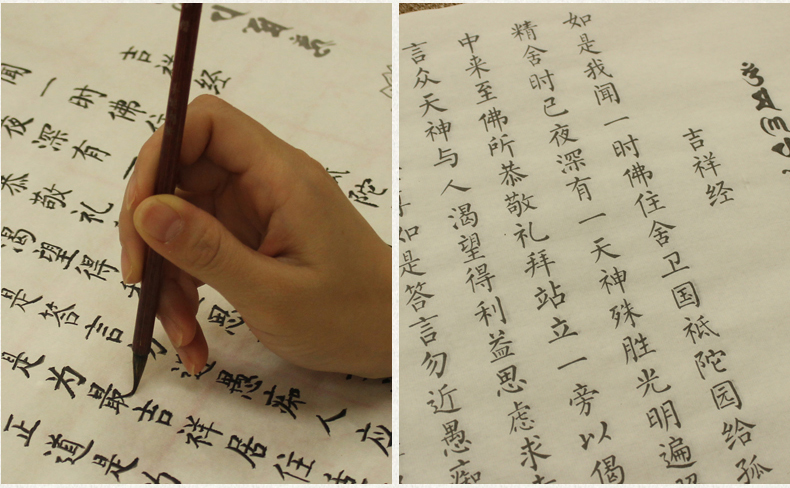 吉祥经
闻一时佛住陀
夜深有一
恭敬礼
渴望得思
是答言勿近愚痴人应
是为最吉祥居住
正道是为
吉祥经
如是我闻一时佛住舍卫国祇陀园给孤
精舍时已夜深有一天神殊胜光明遍照
中来至佛所恭敬礼拜站立一旁以偈
言众天神与人渴望得利益思虑求
如是答言勿近愚痴